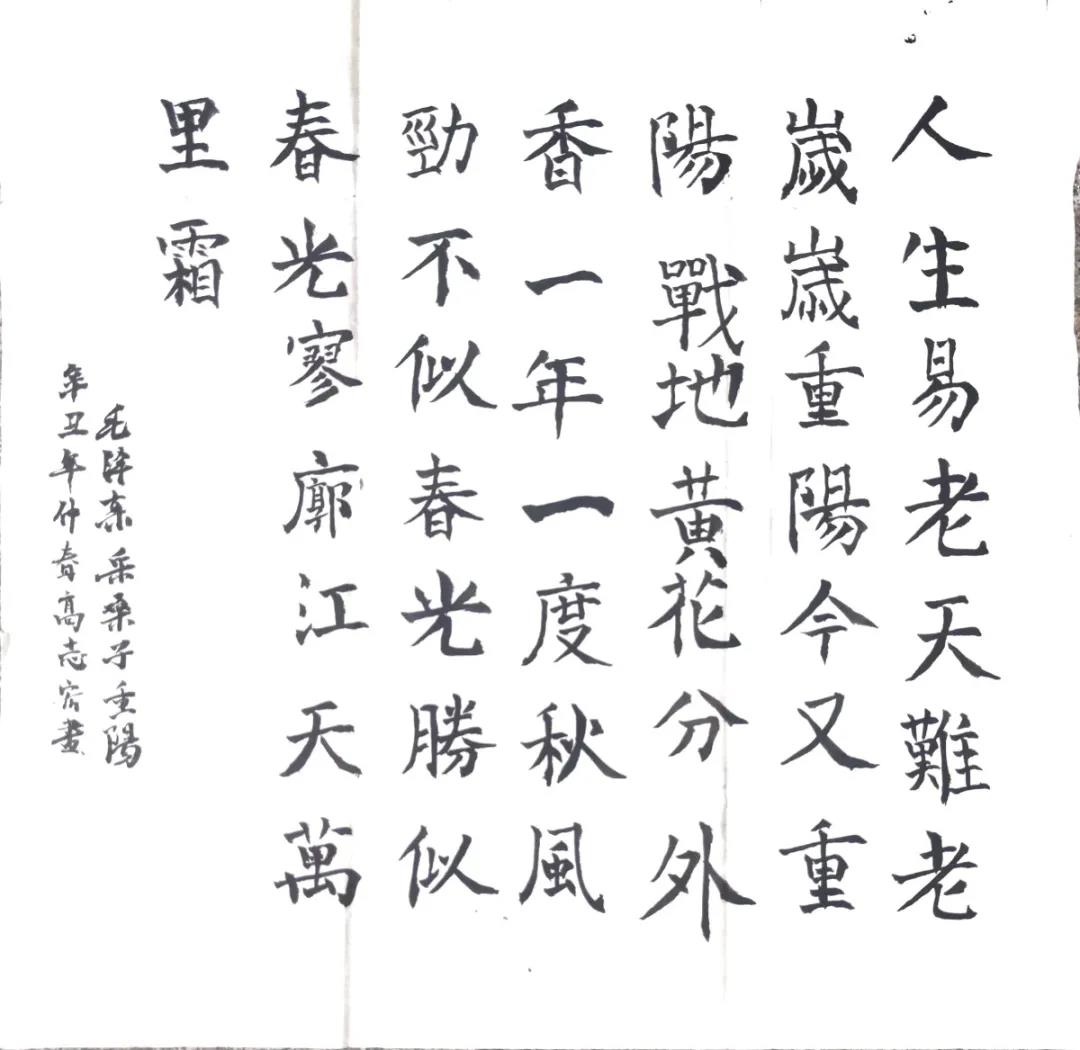 人生易老天難老
歲歲重陽今又重
陽戰地黄花分外
香一年一度秋風
勁不似春光勝似
春光寥廓江天萬
里霜
毛泽东采桑子重陽
辛丑年仲春高志宏書